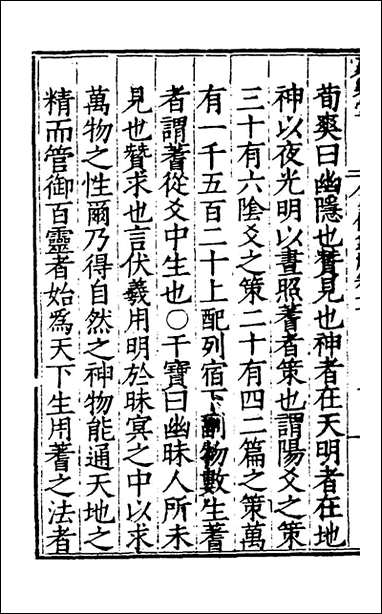 荀爽曰幽隱也贊見也神者在天明者在地
神以夜光明以晝照蓍者策也謂陽爻之策
三十有六陰爻之策二十有四二篇之策萬
有一千五百二十上配列宿下副物數生蓍
者謂蓍從爻中生也○干寶曰幽昧人所未
見也贊求也言伏羲用明於昧冥之中以求
萬物之性爾乃得自然之神物能通天地之
精而管御百靈者始為天下生用蓍之法者